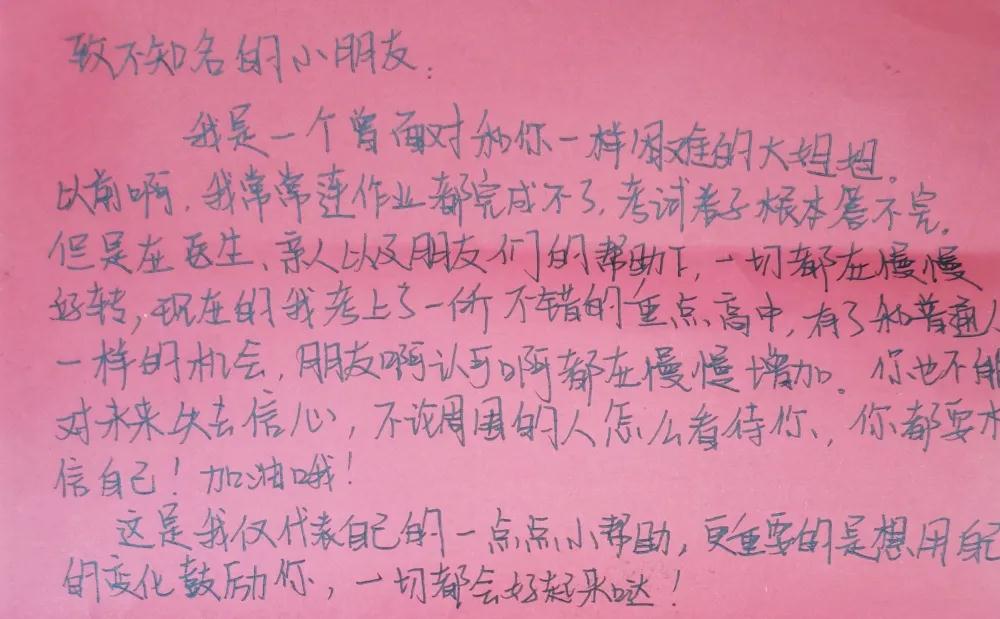 致不知名的小朋友:
我是一个曾面对和你一样困难的大姐姐。
以前啊,我常常连作业都完成不了,考试卷子根本答不完。
但是在医生、亲人以及朋友们的帮助下,一切都在慢慢
好转,现在的我考上了一所不错的重点高中,有了和普通人
一样的机会,朋友啊认可啊都在慢慢增加。你也不能
对未来失去信心,不论周围的人怎么看待你,你都要相
信自己!加油哦!
这是我仅代表自己的一点点小帮助,更重要的是想用自己
的变化鼓励你,一切都会好起来哒!